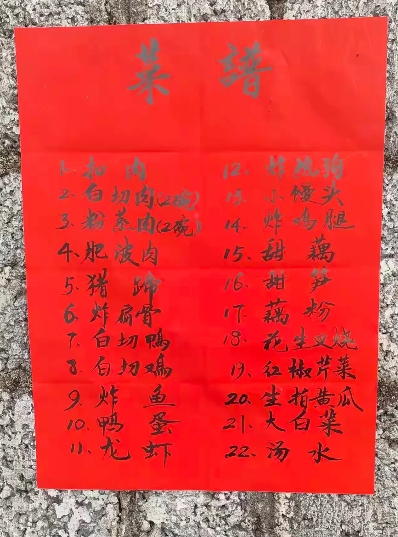 菜 譜
1. 扣 肉
2. 白切肉(2碗)
3. 粉蒸肉(2碗)
4. 肥波肉
5. 猪 蹄
6. 炸扁骨
7. 白切鸭
8. 白切鸡
9. 炸 鱼
10. 鸭 蛋
11. 龙 虾
12. 炸热狗
13. 小馒头
14. 炸鸡腿
15. 甜 藕
16. 甜 笋
17. 藕 粉
18. 花生叉烧
19. 红椒芹菜
20. 生指黄瓜
21. 大白菜
22. 汤 水